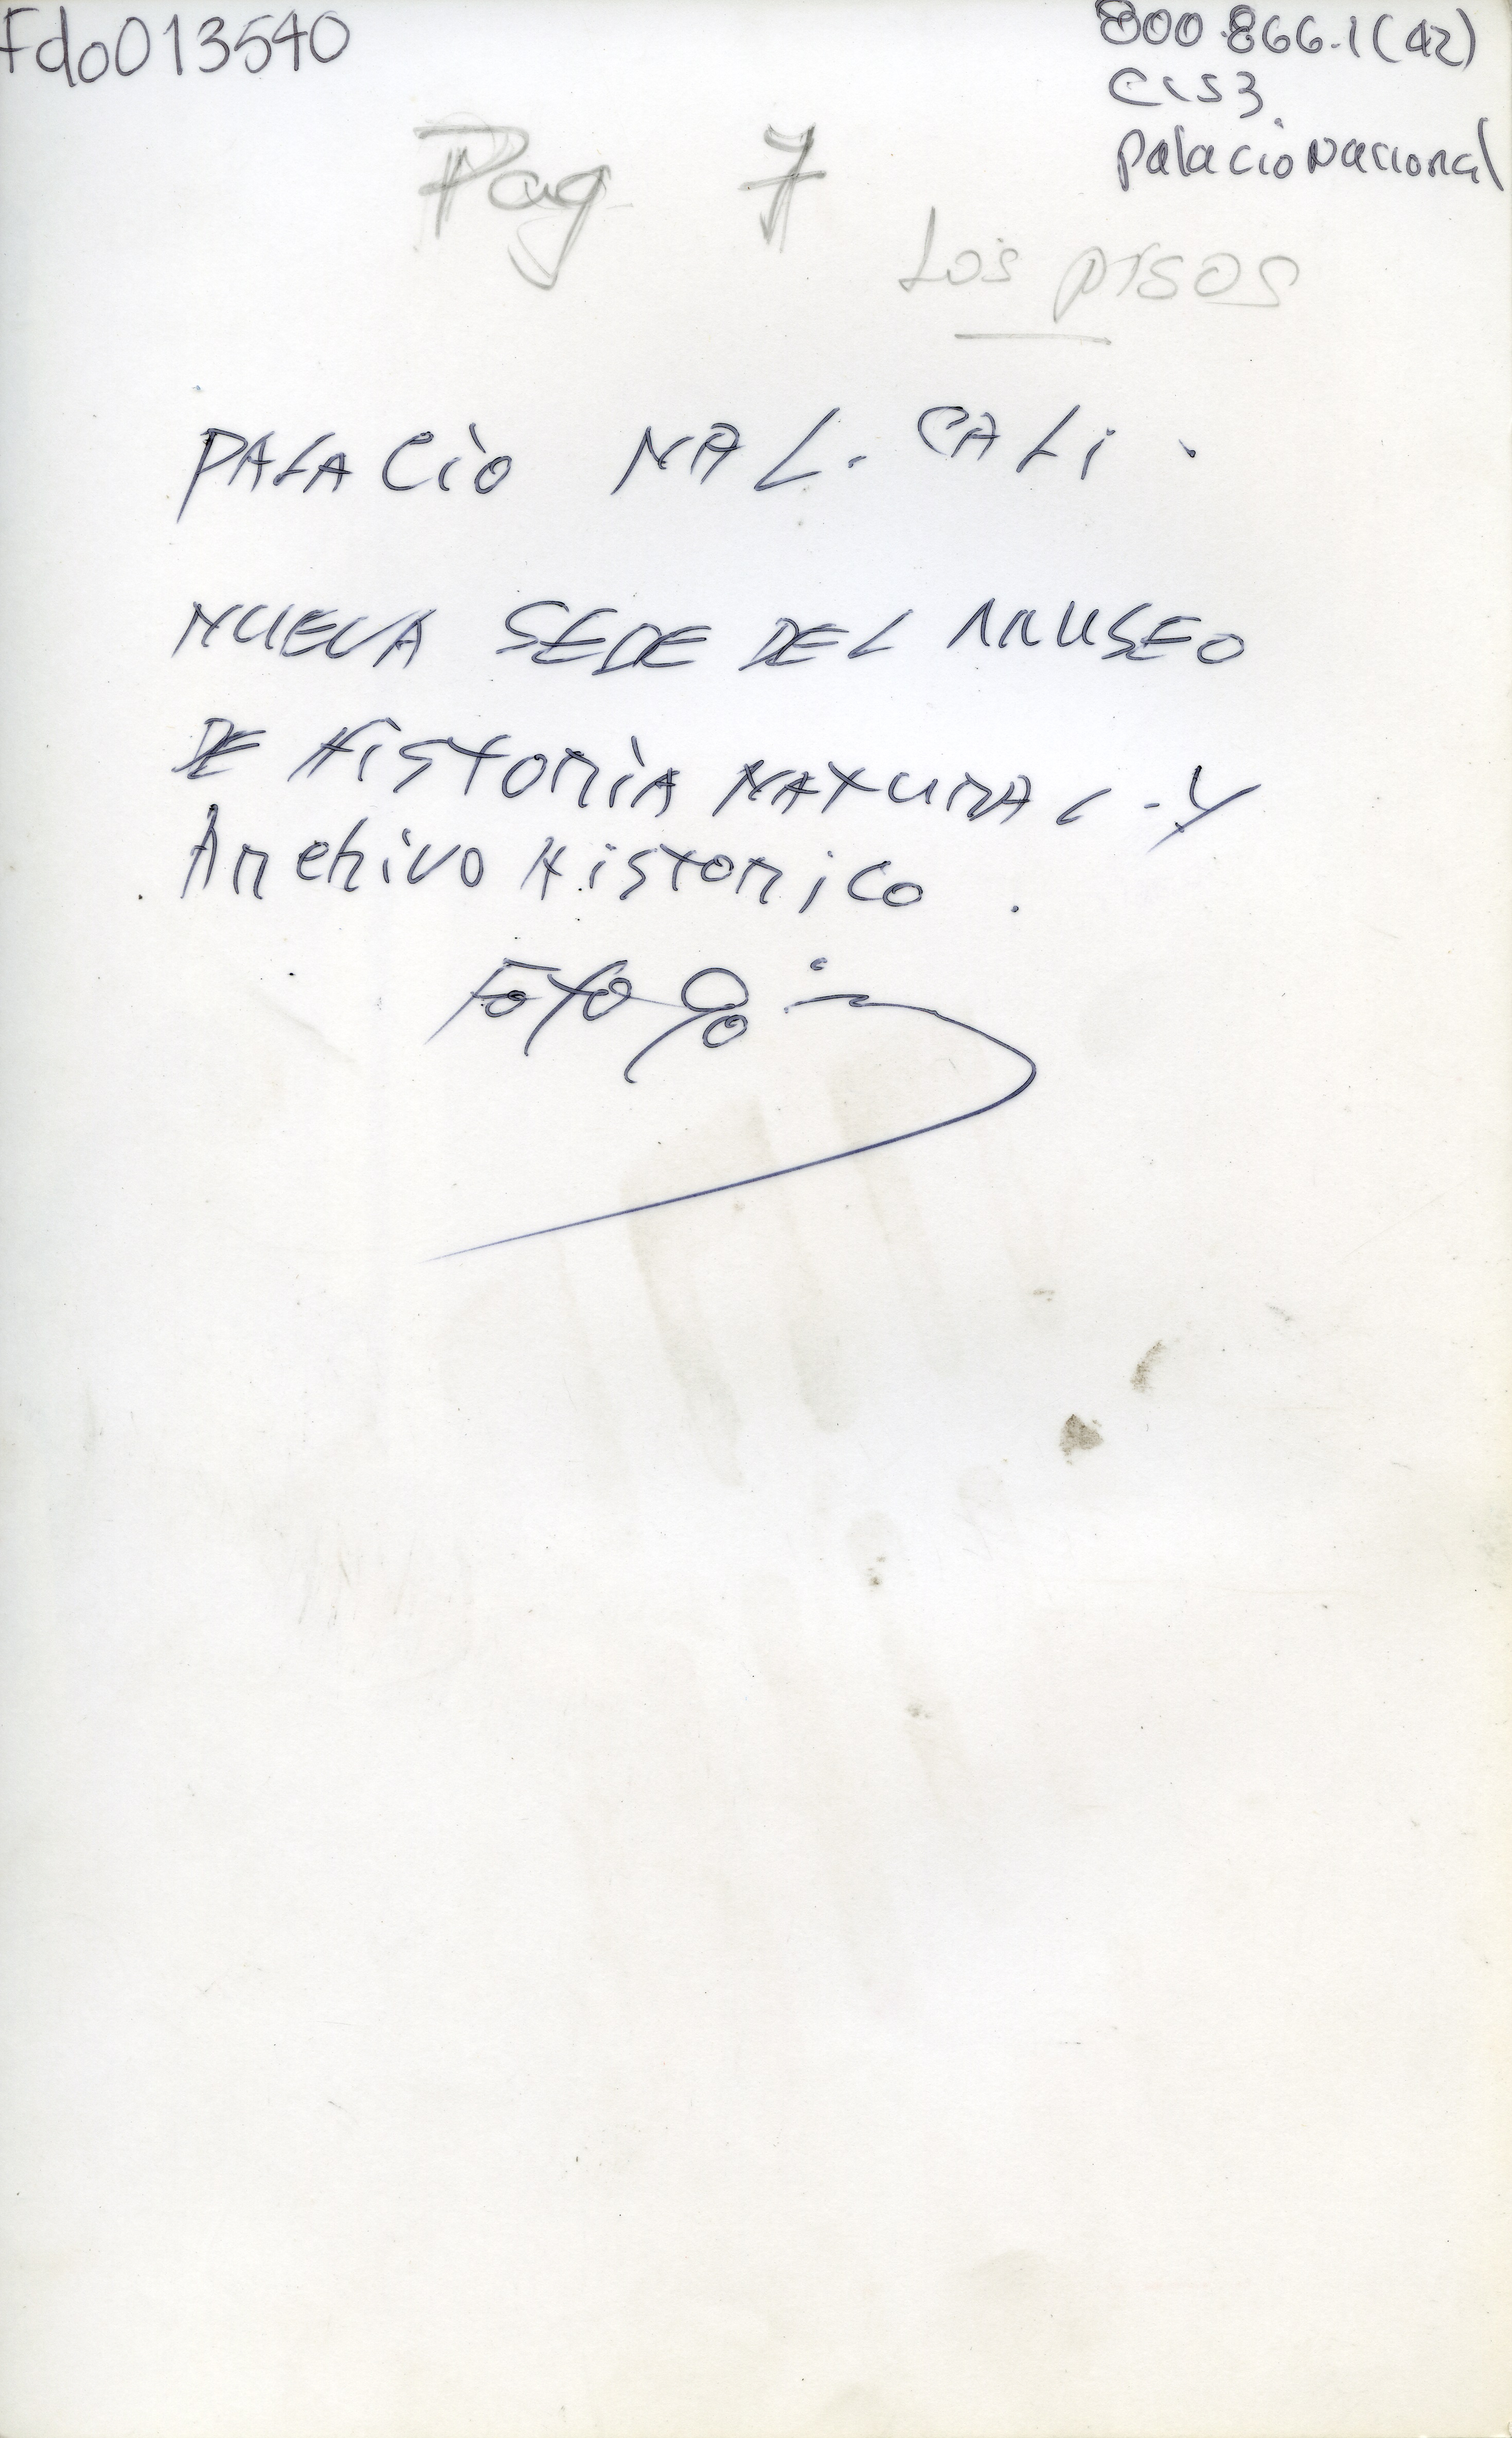 Fdo013540
800.866.1(42)
CIS3.
Palacio Nacional
Pag 7
Los pisos
PALACIO NAL. CALI.
NUEVA SEDE DEL MUSEO
DE HISTORIA NATURAL - Y
Archivo Historico.
Foto